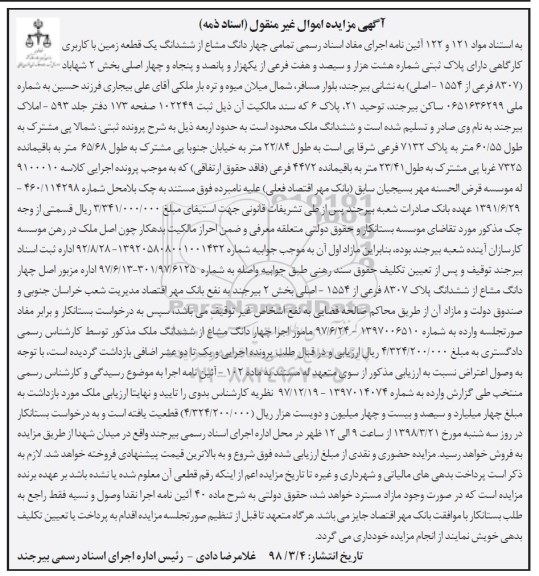 آگهی مزایده اموال غیر منقول (اسناد ذمه)
به استناد مواد ۱۲۱ و ۱۲۲ آئین نامه اجرای مفاد اسناد رسمی تمامی چهار دانگ مشاع از ششدانگ یک قطعه زمین با کاربری
کارگاهی دارای پلاک ثبتی شماره هشت هزار و سیصد و هفت فرعی از یکهزار و پانصد و پنجاه و چهار اصلی بخش ۲ شهاباد
(۸۳۰۷ فرعی از ۱۵۵۴ - اصلی) به نشانی بیرجند، بلوار مسافر، شمال میلان میوه و تره بار ملکی آقای علی بیجاری فرزند حسین به شماره
ملی ۰۶۵۱۶۳۶۲۹۹ ساکن بیرجند، توحید ۲۱، پلاک ۶ که سند مالکیت آن ذیل ثبت ۱۰۲۲۴۹ صفحه ۱۷۳ دفتر جلد ۵۹۳ - املاک
بیرجند به نام وی صادر و تسلیم شده است و ششدانگ ملک محدود است به حدود اربعه ذیل به شرح پرونده ثبتی: شمالا پی مشترک به
طول ۶۰/۵۵ متر به پلاک ۷۱۳۲ فرعی شرقا پی است به طول ۲۲/۸۴ متر به خیابان جنوبا پی مشترک به طول ۶۵/۶۸ متر به باقیمانده
۷۳۲۵ غربا پی مشترک به طول ۲۳/۴۱ متر به باقیمانده ۴۴۷۲ فرعی (فاقد حقوق ارتفاقی) که به موجب پرونده اجرایی کلاسه ۹۱۰۰۰۱۰
له موسسه قرض الحسنه مهر بسیجیان سابق (بانک مهر اقتصاد فعلی) علیه نامبرده فوق مستند به چک بلامحل شماره ۴۶۰/۱۱۴۲۹۸ -
۱۳۹۱/۶/۲۹ عهده بانک صادرات شعبه بیرجند پس از طی تشریفات قانونی جهت استیفای مبلغ ۳/۳۴۱/۰۰۰/۰۰۰ ریال قسمتی از وجه
چک مذکور مورد تقاضای موسسه بستانکار و حقوق دولتی متعلقه معرفی و ضمن احراز مالکیت بدهکار چون اصل ملک در رهن موسسه
کارسازان آینده شعبه بیرجند بوده، بنابراین مازاد اول آن به موجب جوابیه شماره ۱۳۹۲۰۵۸۰۸۰۰۱۰۰۱۴۳۲-۹۲/۸/۲۸ اداره ثبت اسناد
بیرجند توقیف و پس از تعیین تکلیف حقوق سند رهنی طبق جوابیه واصله به شماره ۳۰۱/۹۷/۶۱۲۵-۹۷/۶/۱۳ اداره مزبور اصل چهار
دانگ مشاع از ششدانگ پلاک ۸۳۰۷ فرعی از ۱۵۵۴ - اصلی بخش ۲ بیرجند به نفع بانک مهر اقتصاد مدیریت شعب خراسان جنوبی و
صندوق دولت و مازاد آن از طریق محاکم صالحه قضایی به نفع اشخاص غیر توقیف می باشد، سپس به درخواست بستانکار و برابر مفاد
صورتجلسه وارده به شماره ۱۳۹۷۰۰۶۵۱۰ - ۹۷/۶/۲۴ مامور اجرا چهار دانگ مشاع از ششدانگ ملک مذکور توسط کارشناس رسمی
دادگستری به مبلغ ۴/۳۲۴/۲۰۰/۰۰۰ ریال ارزیابی و در قبال طلب پرونده اجرایی و یک تا دو عشر اضافی بازداشت گردیده است، با توجه
به وصول اعتراض نسبت به ارزیابی مذکور از سوی متعهد له مستند به ماده ۱۰۲ - آئین نامه اجرا به موضوع رسیدگی و کارشناس رسمی
منتخب طی گزارش وارده به شماره ۱۳۹۷۰۱۴۰۷۴ - ۹۷/۱۲/۱۹ نظریه کارشناس بدوی را تایید و نهایتا ارزیابی ملک مورد بازداشت به
مبلغ چهار میلیارد و سیصد و بیست و چهار میلیون و دویست هزار ریال (۴/۳۲۴/۲۰۰/۰۰۰) قطعیت یافته است و به درخواست بستانکار
در روز سه شنبه مورخ ۱۳۹۸/۳/۲۱ از ساعت ۹ الی ۱۲ ظهر در محل اداره اجرای اسناد رسمی بیرجند واقع در میدان شهدا از طریق مزایده
به فروش خواهد رسید. مزایده حضوری و نقدی از مبلغ ارزیابی شده فوق شروع و به بالاترین قیمت پیشنهادی فروخته خواهد شد. لازم به
ذکر است پرداخت بدهی های مالیاتی و شهرداری و غیره تا تاریخ مزایده اعم از اینکه رقم قطعی آن معلوم شده یا نشده باشد بر عهده برنده
مزایده است که در صورت وجود مازاد مسترد خواهد شد، حقوق دولتی به شرح ماده ۴۰ آئین نامه اجرا نقدا وصول و نسیه فقط راجع به
طلب بستانکار با موافقت بانک مهر اقتصاد جایز می باشد. هرگاه متعهد تا قبل از تنظیم صورتجلسه مزایده اقدام به پرداخت یا تعیین تکلیف
بدهی خویش نمایند از انجام مزایده خودداری می گردد.
تاریخ انتشار: ۹۸/۳/۴ غلامرضا دادی - رئیس اداره اجرای اسناد رسمی بیرجند